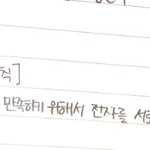 칙]
만족하기 위해서 전자를 서로